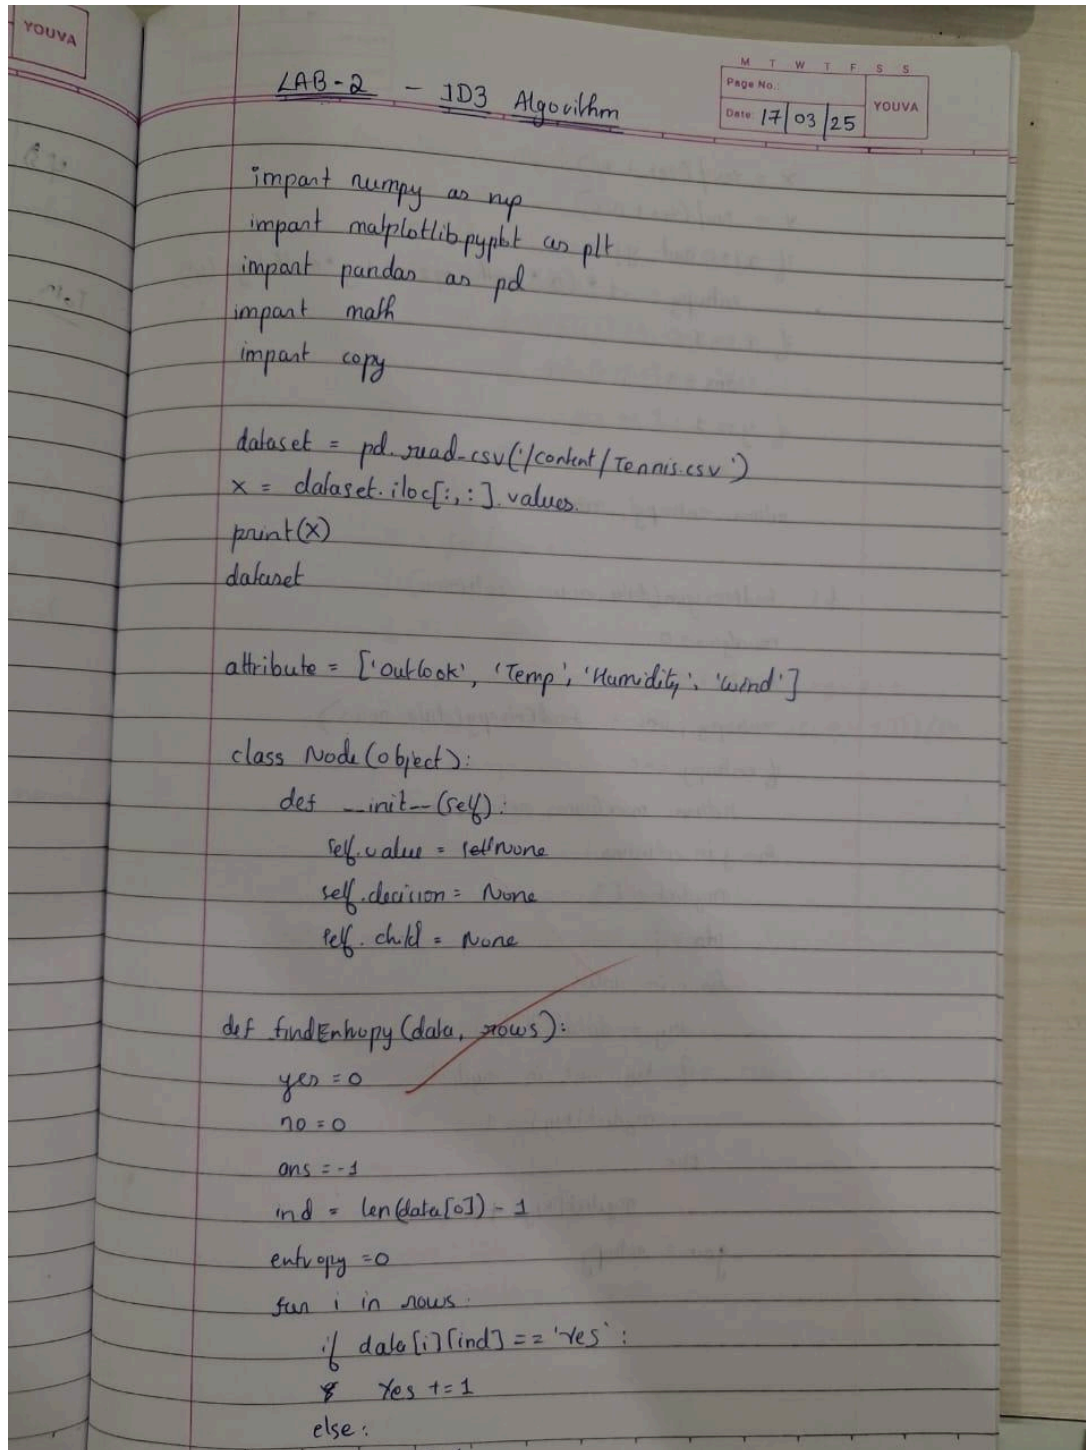 YOUVA
LAB-2 - ID3 Algorithm
M T W T F S S
Page No.:
Date: 17/03/25
YOUVA
import numpy as np
import matplotlib.pyplot as plt
import pandas as pd
import math
import copy
dataset = pd.read_csv('/content/Tennis.csv')
x = dataset.iloc[:,:].values
print(x)
dataset
attribute = ['outlook', 'Temp', 'Humidity', 'wind']
class Node(object):
def __init__(self):
self.value = None
self.decision = None
self.child = None
def findEntropy(data, rows):
yes = 0
no = 0
ans = -1
ind = len(data[0]) - 1
entropy = 0
for i in rows:
if data[i][ind] == 'Yes':
Yes += 1
else: